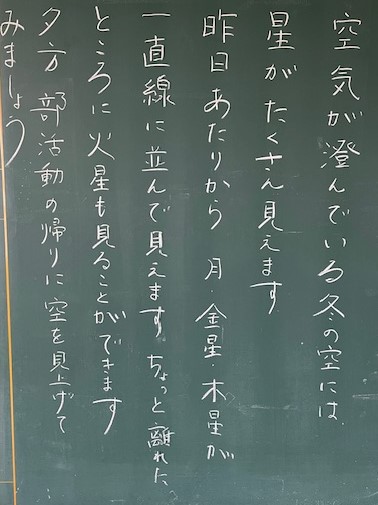 空気が澄んでいる冬の空には
星がたくさん見えます
昨日あたりから 月・金星・木星が
一直線に並んで見えます ちょっと離れた
ところに火星も見ることができます
夕方 部活動の帰りに空を見上げて
みましょう